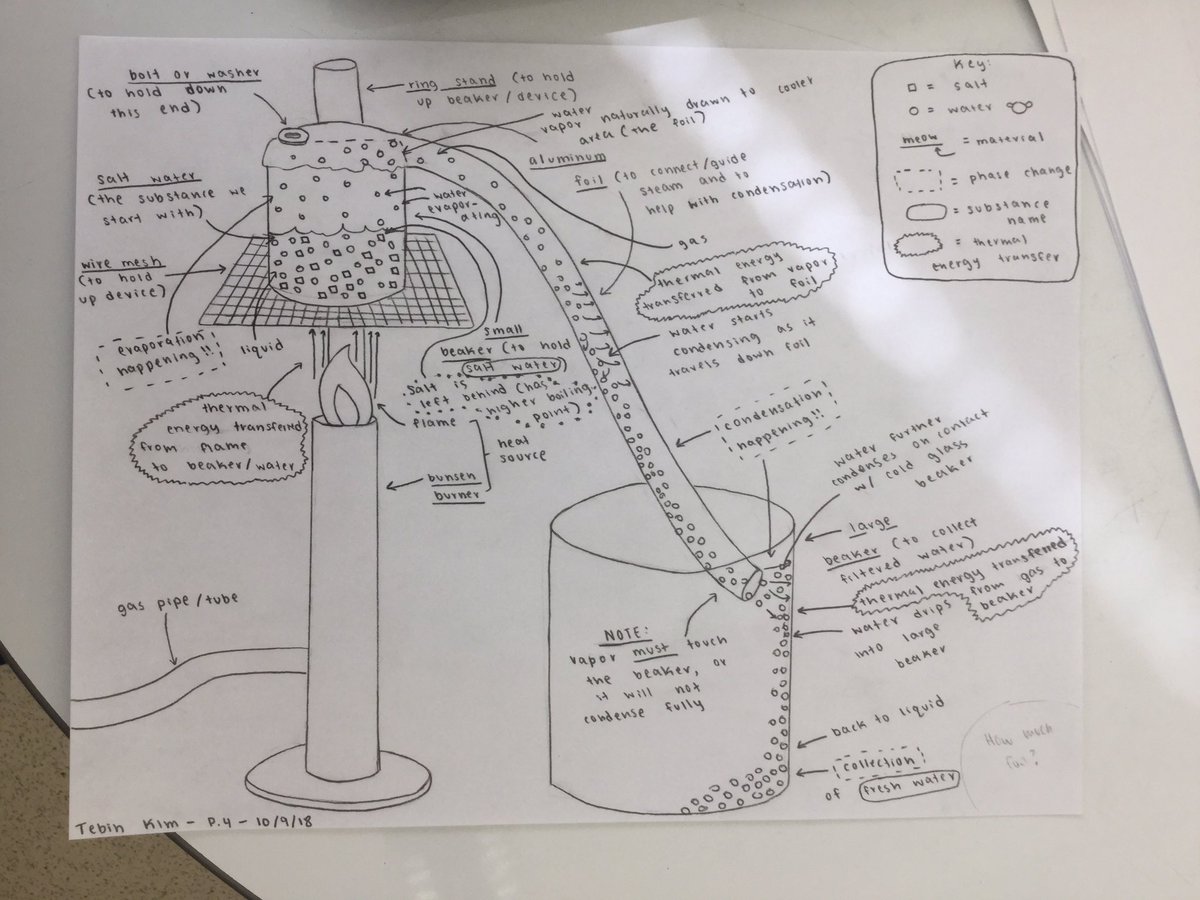 bolt or washer
(to hold down
this end)
ring stand (to hold
up beaker/device)
water
vapor naturally drawn to cooler
area (the foil)
aluminum
foil (to connect/guide
steam and to
help with condensation)
gas
salt water
(the substance we
start with)
water
evapor-
ating
wire mesh
(to hold
up device)
evaporation
happening!!
liquid
small
beaker (to hold
salt water)
salt is
left behind (has
higher boiling
point)
thermal energy
transferred from vapor
to foil
water starts
condensing as it
travels down foil
thermal
energy transferred
from flame
to beaker/water
flame
heat
source
bunsen
burner
condensation
happening!!
water further
condenses on contact
w/ cold glass
beaker
large
beaker (to collect
filtered water)
thermal energy transferred
from gas to
beaker
water drips
into large
beaker
gas pipe/tube
NOTE:
vapor must touch
the beaker, or
it will not
condense fully
back to liquid
collection
of fresh water
How much
foil?
Key:
= salt
= water
meow = material
= phase change
= substance
name
= thermal
energy transfer
Tebin Kim - P.4 - 10/9/18